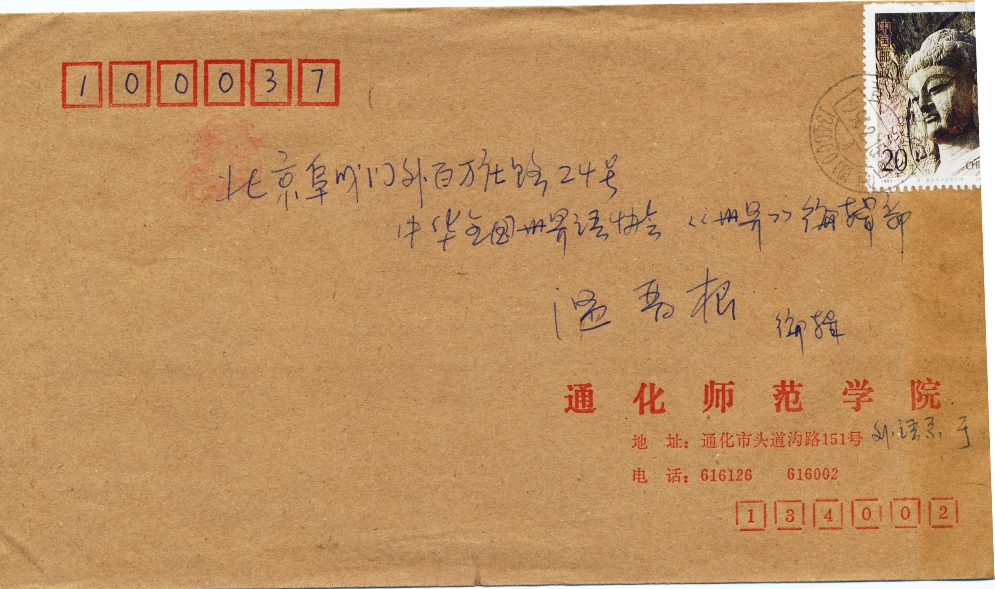 100037
中国邮政
20
CHI
北京阜成门外百万庄路24号
中华全国世界语协会《世界》编辑部
温晋根 编辑
通化师范学院
地 址：通化市头道沟路151号 外语系 于
电 话：616126 616002
134002